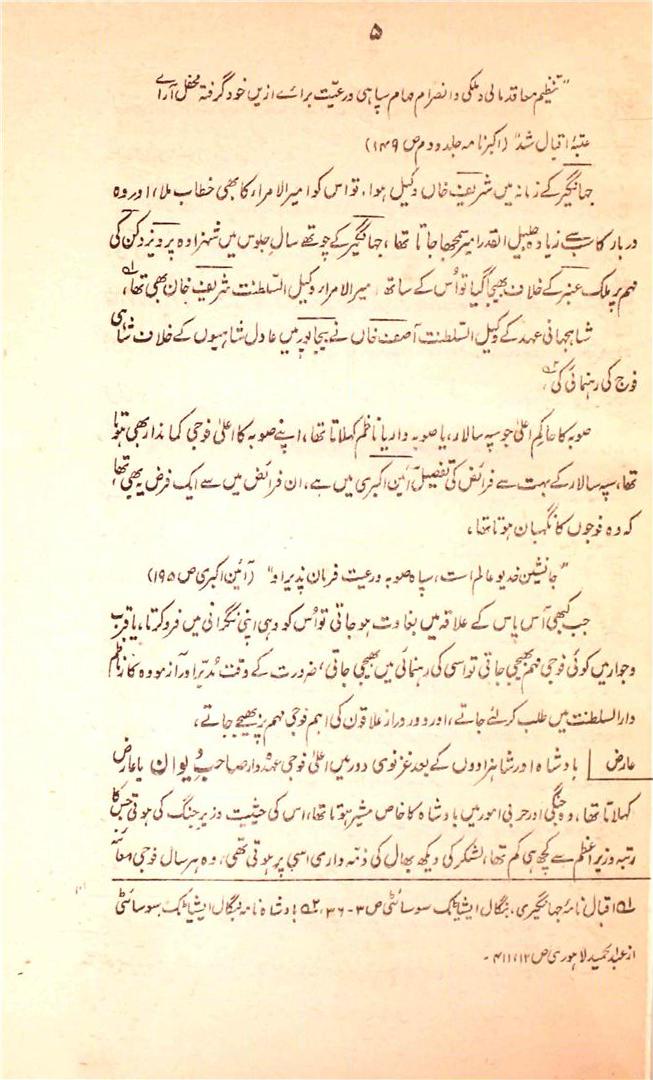 ۵
"تنظیم معاقد مالی و ملکی و انصرام مہام سپاہی و رعیت براے ازیں خود گرفتہ محفل آراے
عتبۂ اقبال شد" (اکبر نامہ جلد دوم ص ۱۴۹)
جہانگیر کے زمانہ میں شریف خاں وکیل ہوا، تو اس کو امیرالامراء کا بھی خطاب ملا، اور وہ
دربار کا سب سے زیادہ جلیل القدر امیر سمجھا جاتا تھا، جہانگیر کے چوتھے سال جلوس میں شہزادہ پرویز دکن کی
مہم پر ملک عنبر کے خلاف بھیجا گیا تو اُس کے ساتھ امیرالامراء وکیل السّلطنت شریف خان بھی تھا،
شاہجہانی عہد کے وکیل السّلطنت آصف خاں نے بیجاپور میں عادل شاہیوں کے خلاف شاہی
فوج کی رہنمائی کی،
صوبہ کا حاکم اعلیٰ جو سپہ سالار، یا صوبہ دار یا ناظم کہلاتا تھا، اپنے صوبہ کا اعلیٰ فوجی کماندار بھی ہوتا
تھا، سپہ سالار کے بہت سے فرائض کی تفصیل آئین اکبری میں ہے، ان فرائض میں سے ایک فرض یہ بھی تھا
کہ وہ فوجوں کا نگہبان ہوتا تھا،
"جانشین خدیو عالم است، سپاہ صوبہ و رعیت فرمان پذیر او" (آئین اکبری ص ۱۹۵)
جب کبھی آس پاس کے علاقہ میں بغاوت ہو جاتی تو اُس کو وہی اپنی نگرانی میں فرو کرتا، یا قرب
و جوار میں کوئی فوجی مہم بھیجی جاتی تو اسی کی رہنمائی میں بھیجی جاتی، ضرورت کے وقت مُدبّر اور آزمودہ کار ناظم
دارالسلطنت میں طلب کر لئے جاتے، اور دور دراز علاقوں کی اہم فوجی مہم پر بھیجے جاتے،
عارض | بادشاہ اور شاہزادوں کے بعد غزنوی دور میں اعلیٰ فوجی عہدہ دار صاحب دیوان یا عارض
کہلاتا تھا، وہ جنگی اور حربی امور میں بادشاہ کا خاص مشیر ہوتا تھا، اس کی حیثیت وزیر جنگ کی ہوتی جس کا
رتبہ وزیر اعظم سے کچھ ہی کم تھا، لشکر کی دیکھ بھال کی ذمہ داری اسی پر ہوتی تھی، وہ ہر سال فوجی معائنہ
لہ اقبال نامۂ جہانگیری، بنگال ایشیاٹک سوسائٹی ص ۳-۳۶، ۲ہ بادشاہ نامہ بنگال ایشیاٹک سوسائٹی
از عبدالحمید لاہوری ص ۱۲، ۴۱۱ ۔